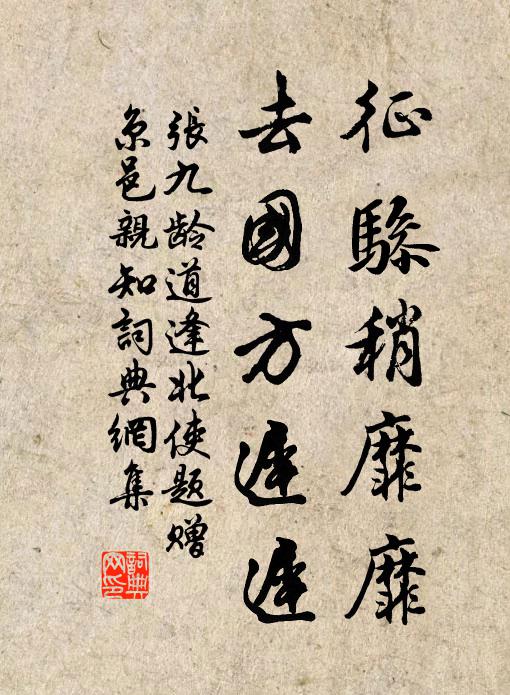 征驂稍靡靡
去國方遲遲
張九龄道逢北使題赠
京邑親知詞典網集
詞典
网印